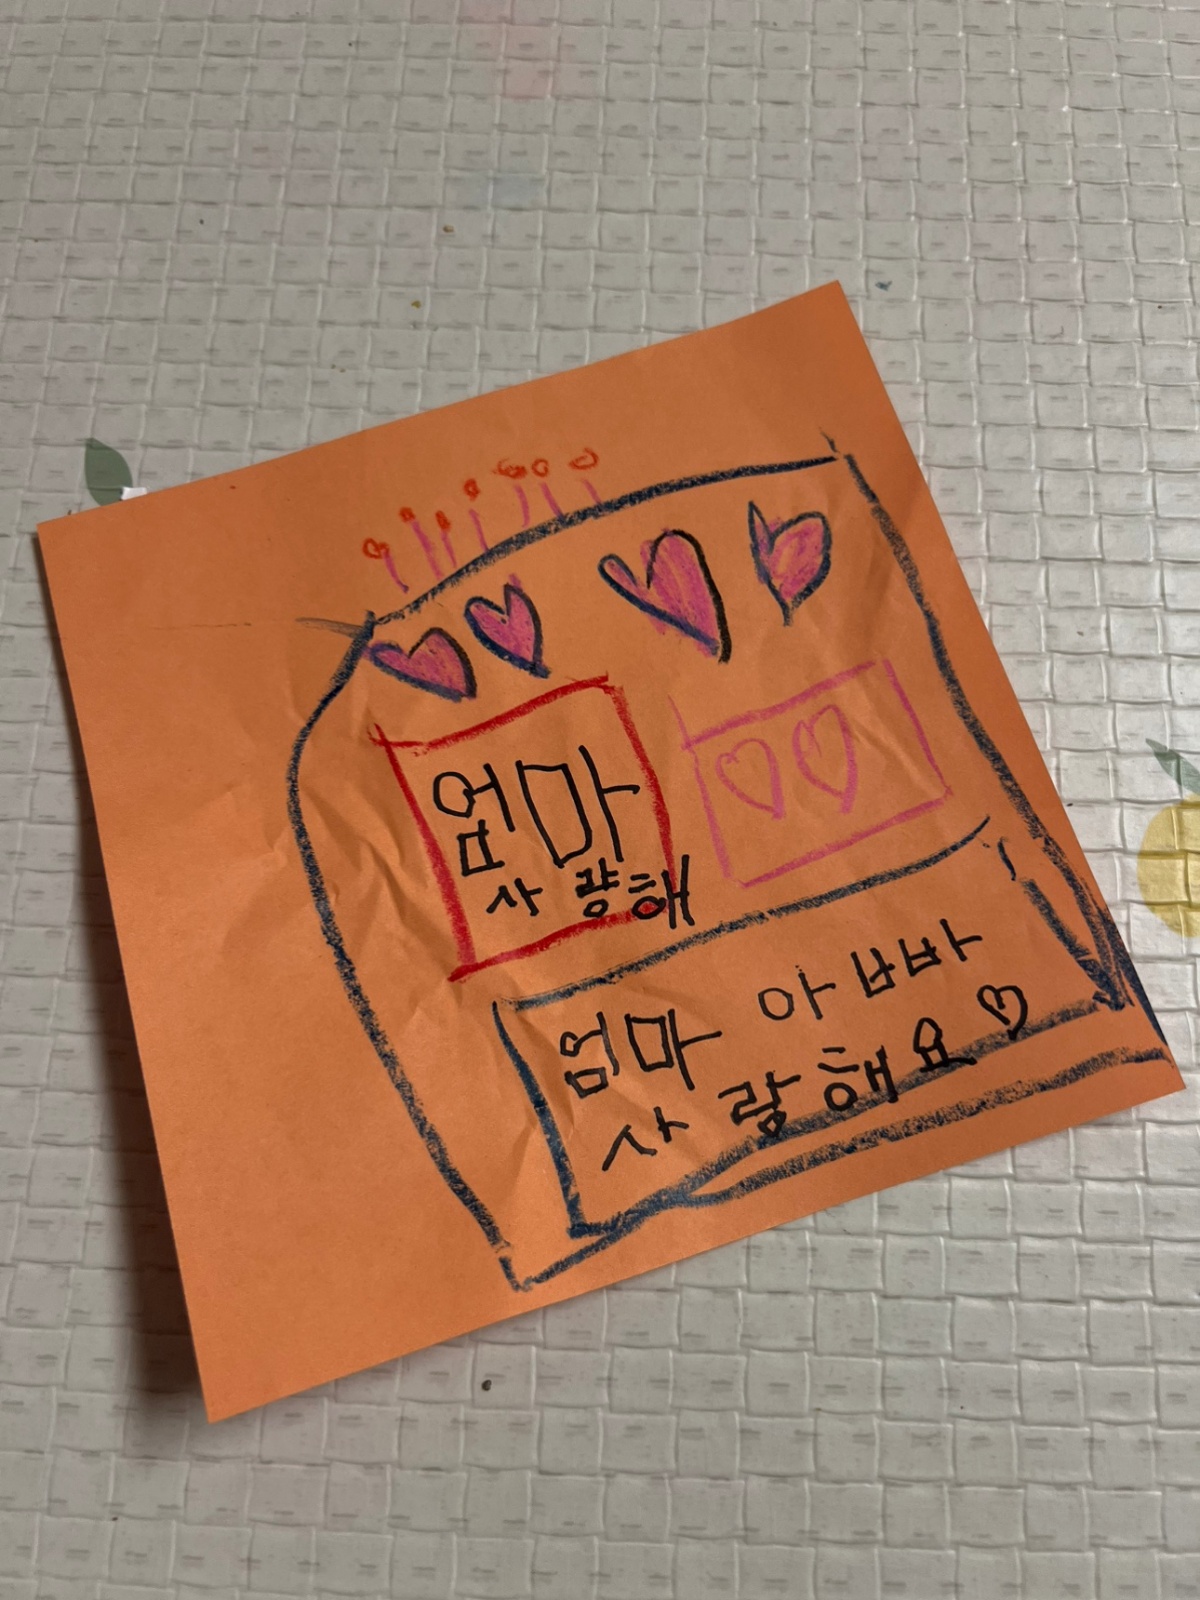 엄마
사랑해
엄마 아빠
사랑해요♡